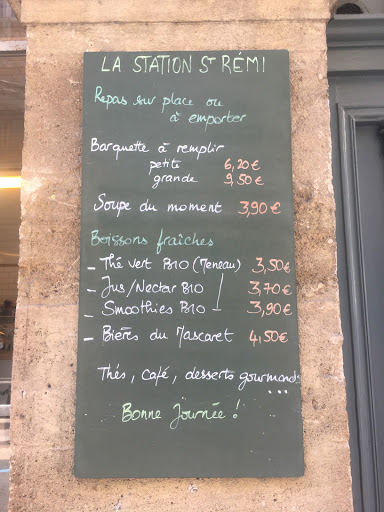 LA STATION ST RÉMI
Repas sur place ou
à emporter
Barquette à remplir
petite 6,20€
grande 9,50€
Soupe du moment 3,90€
Boissons fraîches
- Thé vert BIO (Meneau) 3,50€
- Jus/Nectar BIO 3,70€
- Smoothies BIO 3,90€
- Bières du Mascaret 4,50€
Thés, Café, desserts gourmands
...
Bonne Journée !